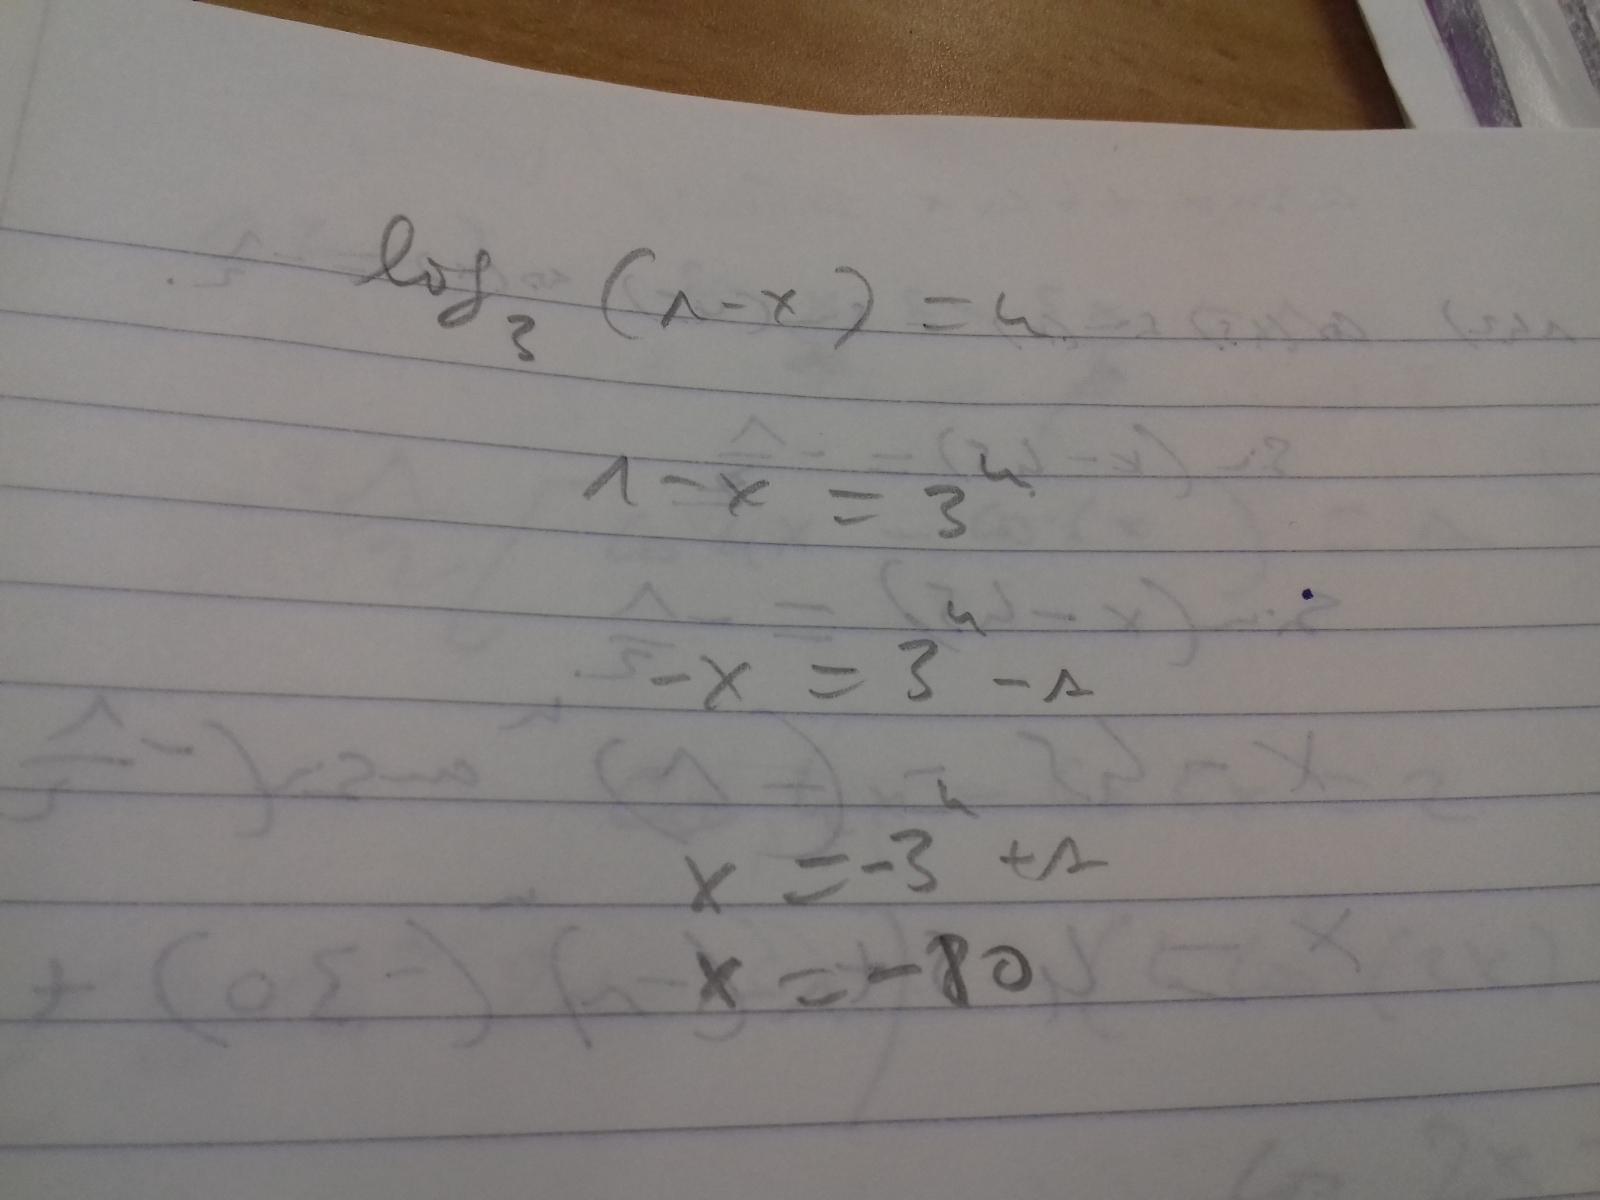 log₃ (1-x) = 4
1-x = 3⁴
-x = 3⁴ -1
x = -3⁴ +1
x = -80